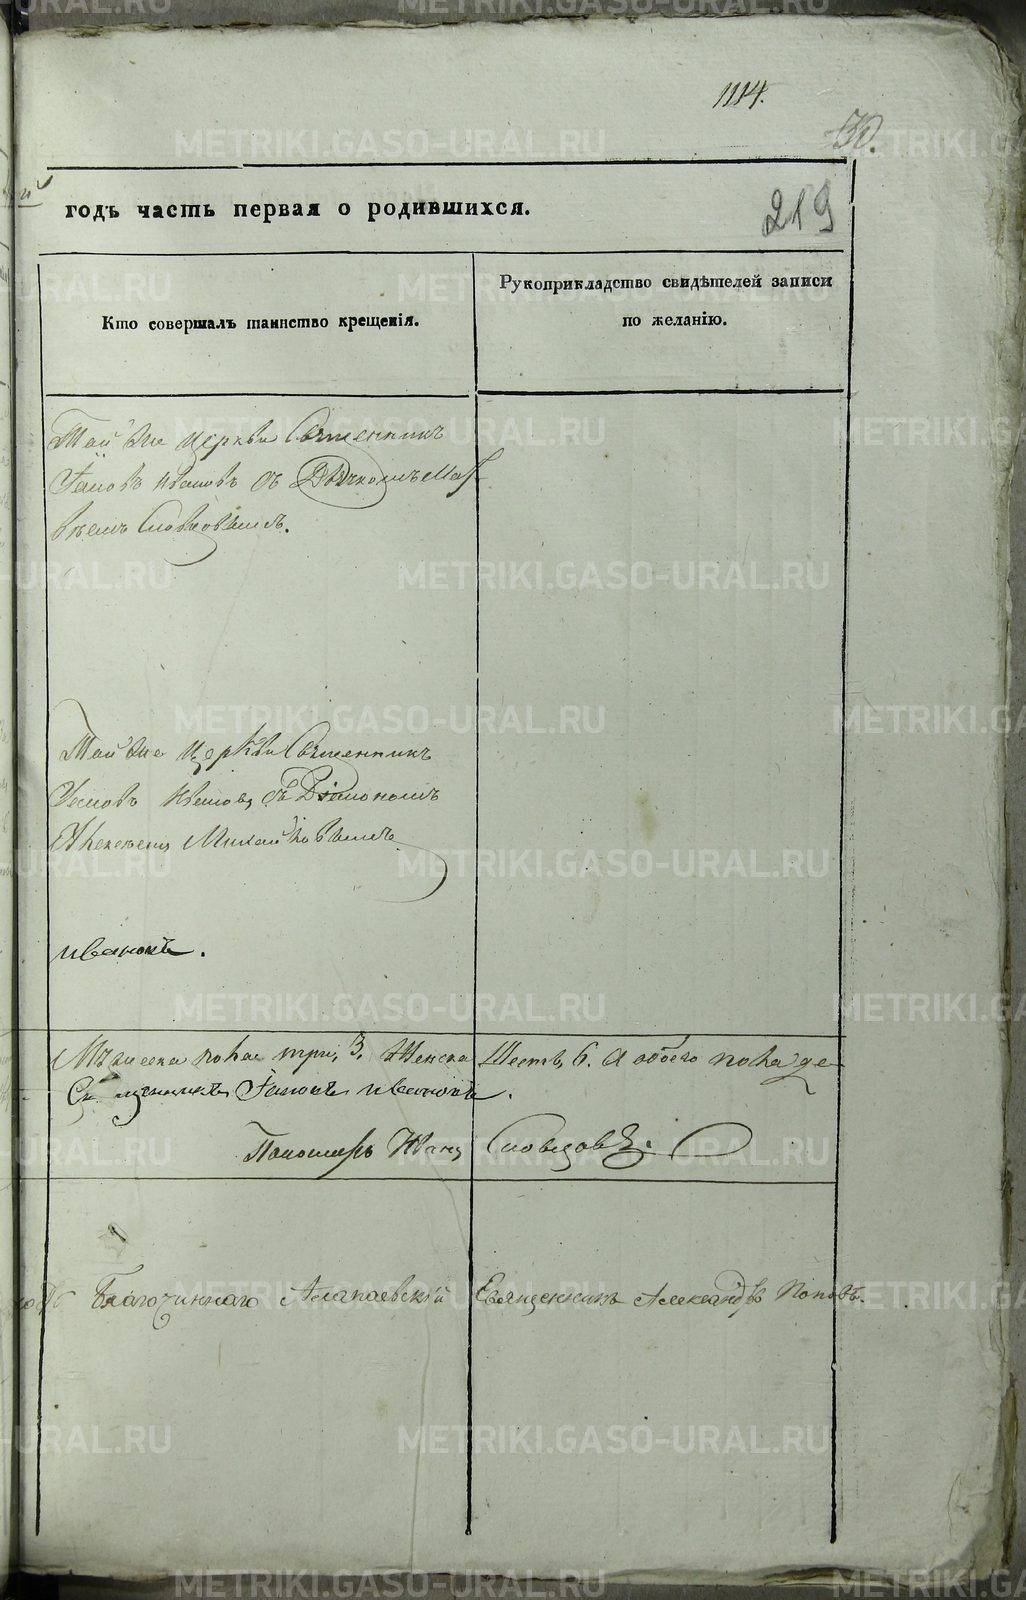 1114.
30.
219
годъ часть первая о родившихся.
Кто совершалъ таинство крещенія.
Рукоприкладство свидѣтелей записи
по желанію.
Той же церкви Священникъ
Іаковъ Ивановъ съ Дьячкомъ Мат
вѣемъ Словцовымъ.
Той же Церкви Священникъ
Іаковъ Ивановъ съ Діакономъ
Алексеемъ Михайловымъ
Ивановъ.
Мужеска пола три, 3. Женска Шесть, 6. А обоего пола де
Священникъ Іаковъ Ивановъ.
Пономарь Иванъ Словцовъ.
Благочиннаго Алапаевскій Священникъ Александръ Поповъ.
METRIKI.GASO-URAL.RU